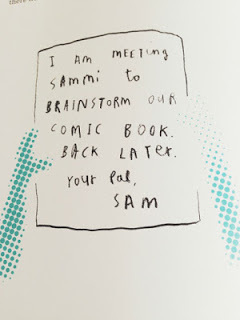 I AM MEETING
SAMMI to
BRAINSTORM OUR
COMIC BOOK.
BACK LATER.
Your Pal,
SAM